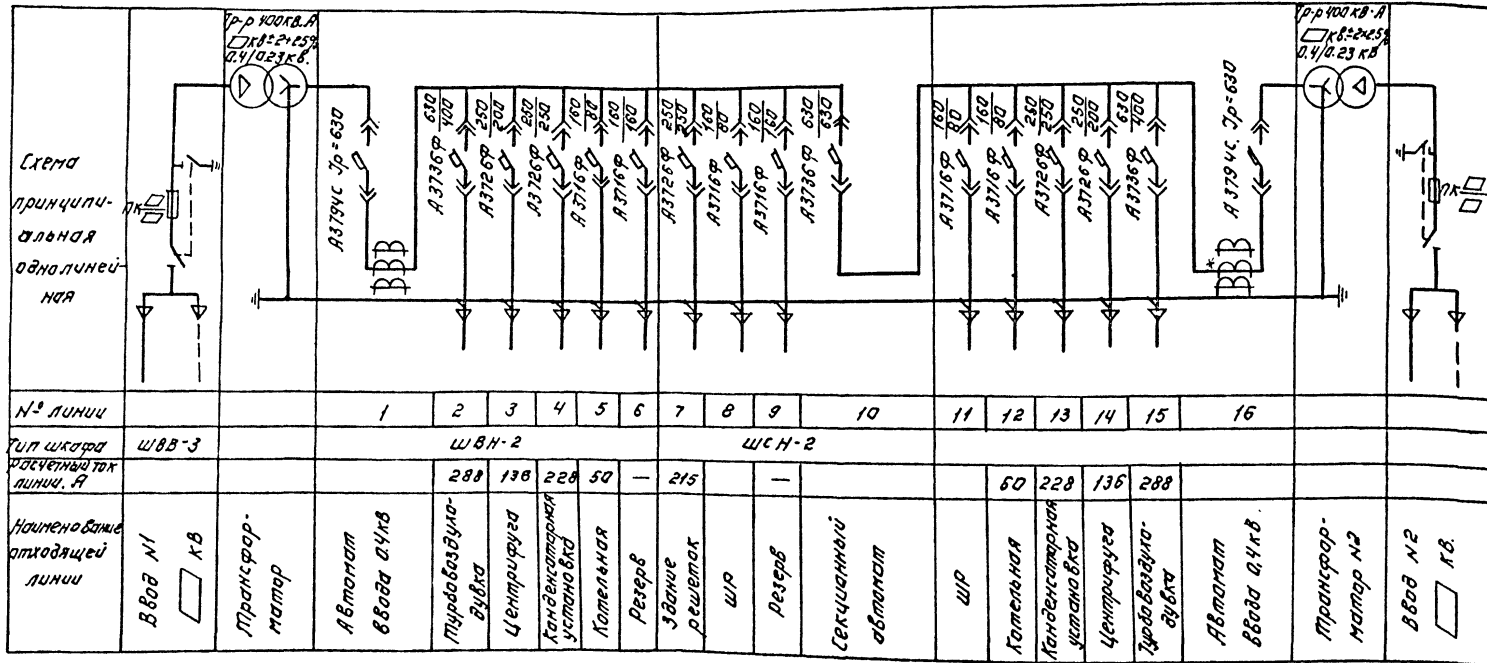 Тр-р 400 кВ.А
кВ±2×2.5%
0.4/0.23 кВ.
Тр-р 400 кВ·А
кВ±2×2.5%
0.4/0.23 кВ
Схема
принципи-
альная
однолиней-
ная
ПК
А3794С Jр=630
А3736Ф 630/400
А3726Ф 250/200
А3726Ф 250/250
А3716Ф 160/80
А3716Ф 160/160
А3726Ф 250/250
А3716Ф 160/80
А3716Ф 160/160
А3736Ф 630/630
А3716Ф 160/80
А3716Ф 160/80
А3726Ф 250/250
А3726Ф 250/200
А3736Ф 630/400
*
А3794С, Jр=630
ПК
№ линии 1 2 3 4 5 6 7 8 9 10 11 12 13 14 15 16
Тип шкафа ШВВ-3 ШВН-2 ШСН-2
Расчетный ток
линии, А
288 136 228 50 — 215 — 60 228 136 288
Наименование
отходящей
линии
Ввод N1
кВ
Трансфор-
матор
Автомат
ввода 0.4кВ
Турбовоздухо-
дувка
Центрифуга
Конденсаторная
установка
Котельная
Резерв
Здание
решеток
ШР
Резерв
Секционный
автомат
ШР
Котельная
Конденсаторная
установка
Центрифуга
Турбовоздухо-
дувка
Автомат
ввода 0,4кВ.
Трансфор-
матор N2
Ввод N2
кВ.